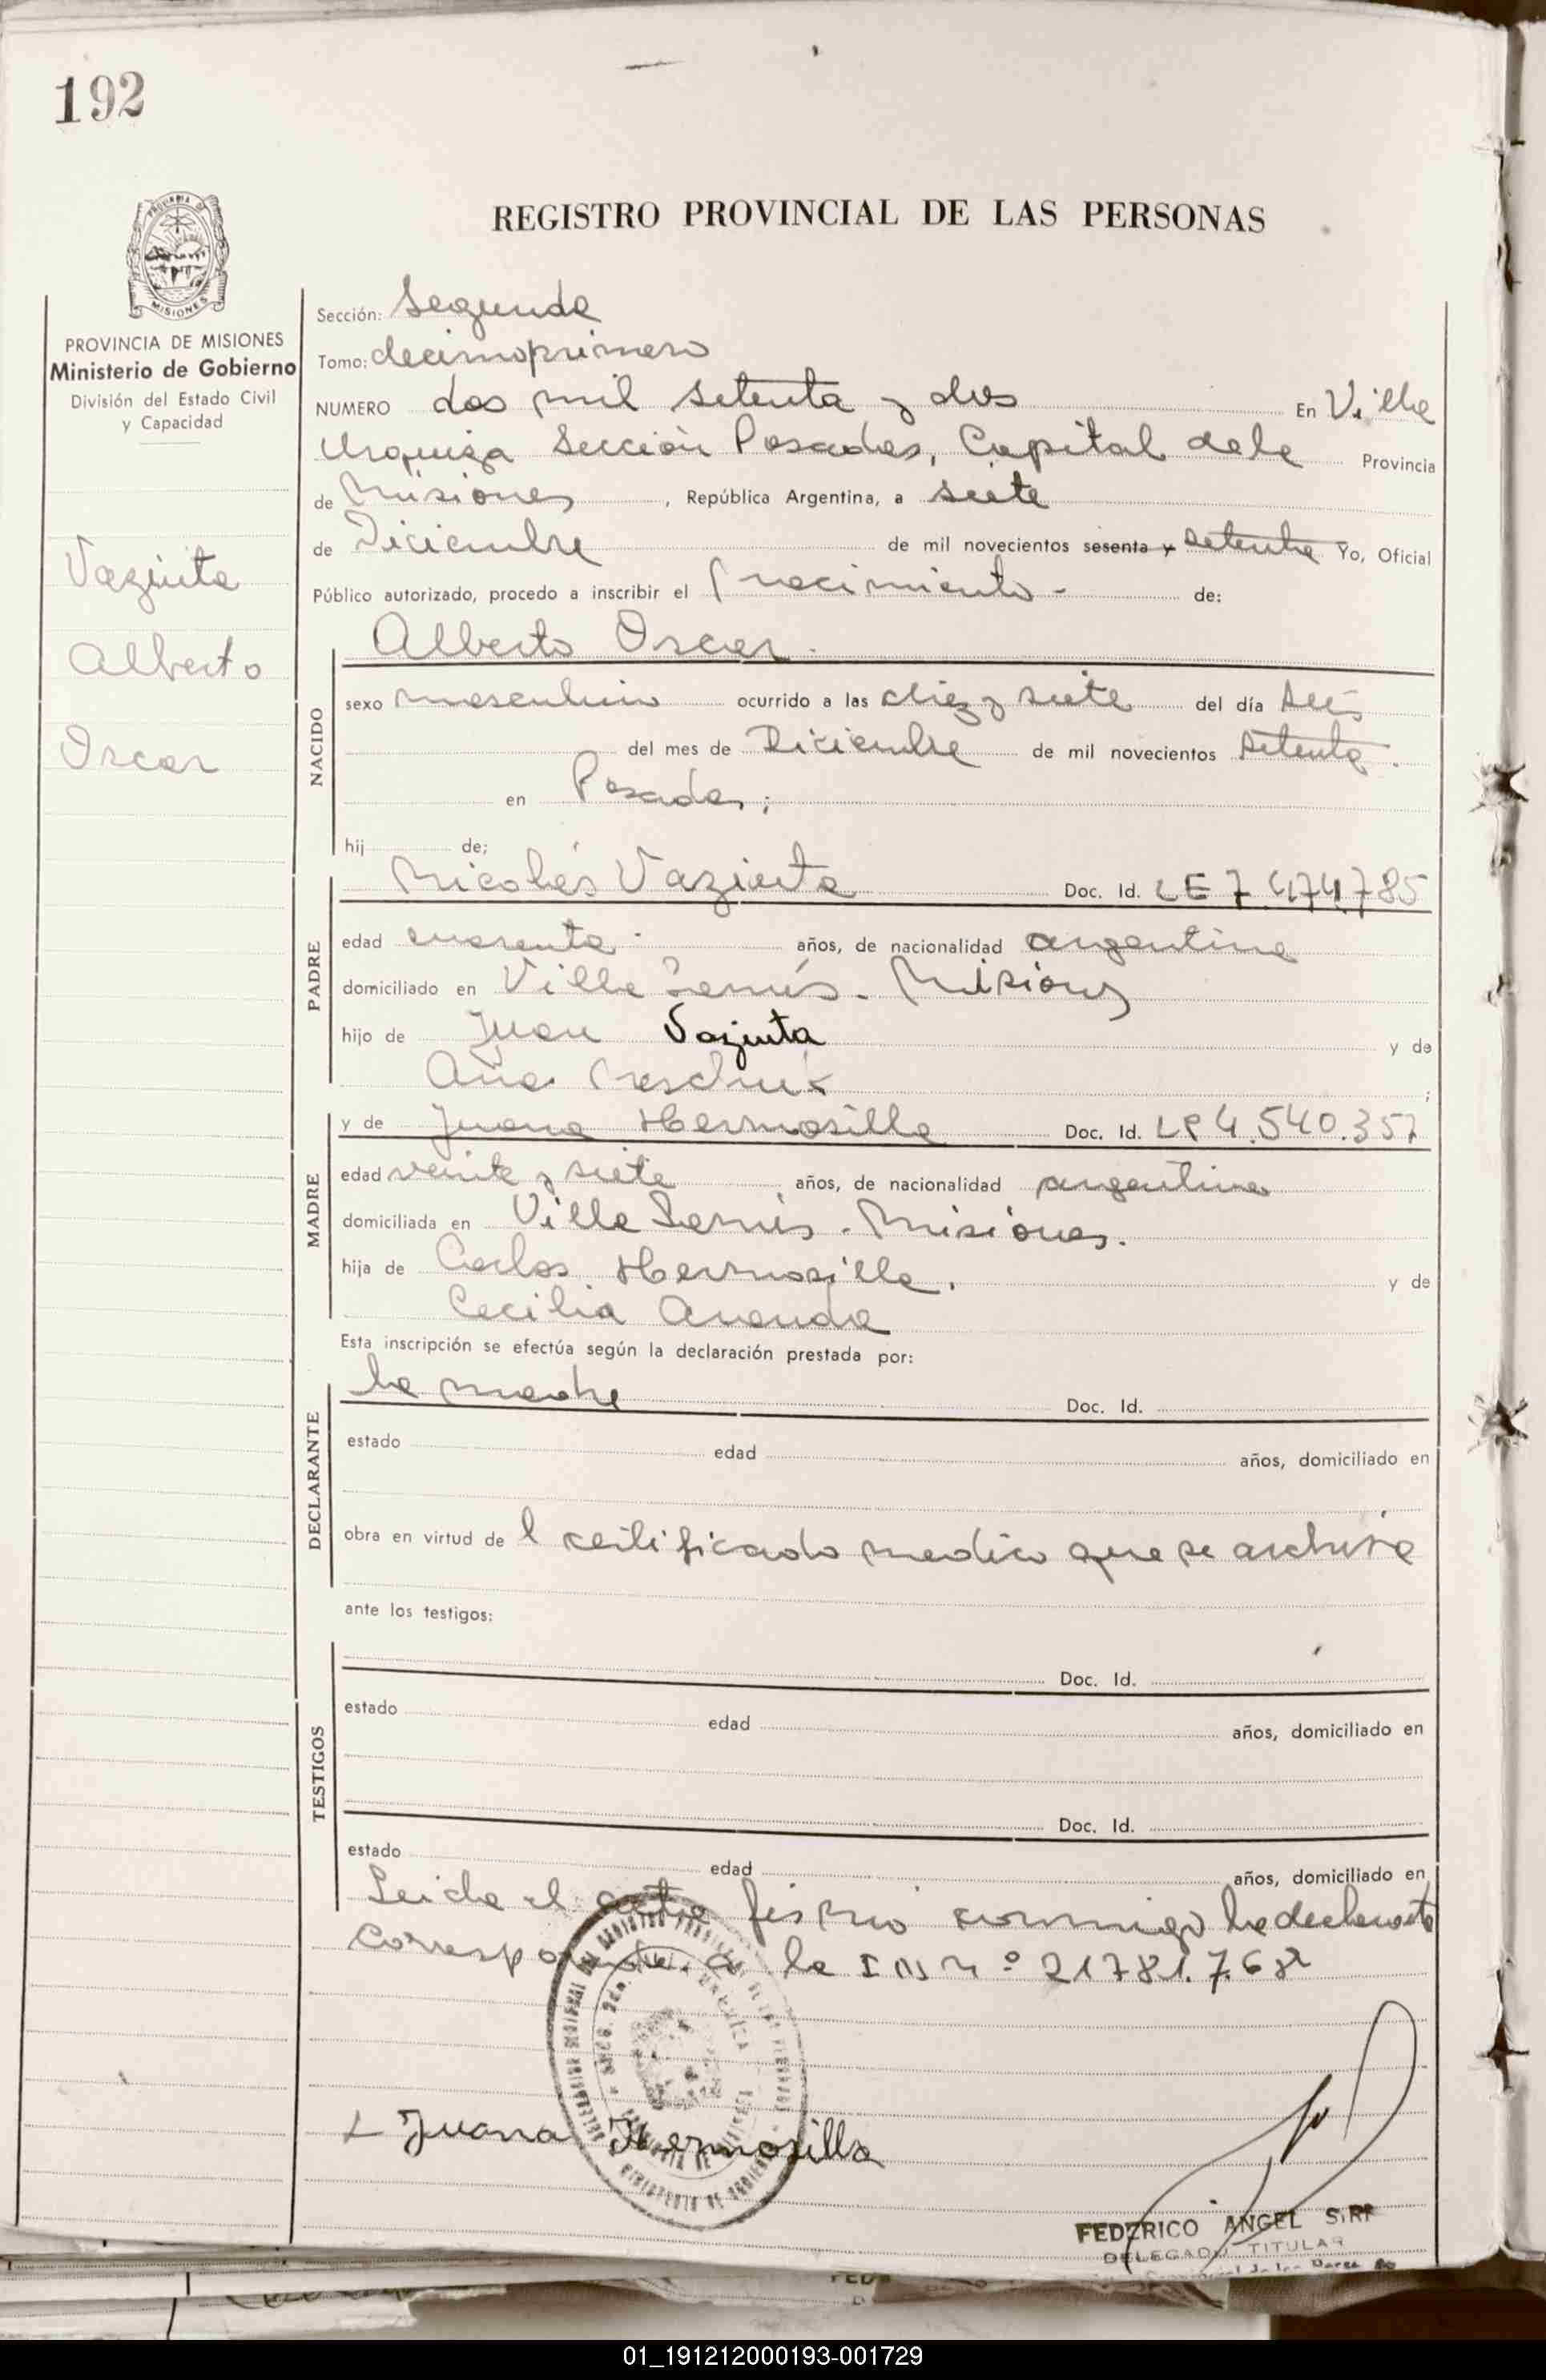 192
REGISTRO PROVINCIAL DE LAS PERSONAS
MISIONES
PROVINCIA DE MISIONES
Ministerio de Gobierno
División del Estado Civil
y Capacidad
Vaziuta
Alberto
Oscar
Sección: Segunda
Tomo: decimoprimero
NUMERO dos mil setenta y dos En Villa
Urquiza Sección Posadas, Capital dela Provincia
de Misiones, República Argentina, a siete
de Diciembre de mil novecientos sesenta y setenta Yo, Oficial
Público autorizado, procedo a inscribir el nacimiento - de:
Alberto Oscar.
NACIDO
sexo masculino ocurrido a las diez y siete del día seis
del mes de Diciembre de mil novecientos setenta.
en Posadas;
hij de;
PADRE
Nicolás Vaziuta Doc. Id. LE 7.474.785
edad cuarenta años, de nacionalidad argentina
domiciliado en Villa Lanús - Misiones
hijo de Juan Vaziuta y de
Ana
MADRE
y de Juana Hermosilla Doc. Id. 4.540.357
edad veinte y siete años, de nacionalidad argentina
domiciliada en Villa Lanús - Misiones.
hija de Carlos Hermosilla. y de
Cecilia
Esta inscripción se efectúa según la declaración prestada por:
DECLARANTE
la madre Doc. Id.
estado edad años, domiciliado en
obra en virtud de l certificado medico que se archiva
ante los testigos:
TESTIGOS
Doc. Id.
estado edad años, domiciliado en
Doc. Id.
estado edad años, domiciliado en
Leida el acta firmó conmigo la declarante
corresponde a la
Juana Hermosilla
FEDERICO ANGEL
DELEGADO TITULAR
01_191212000193-001729